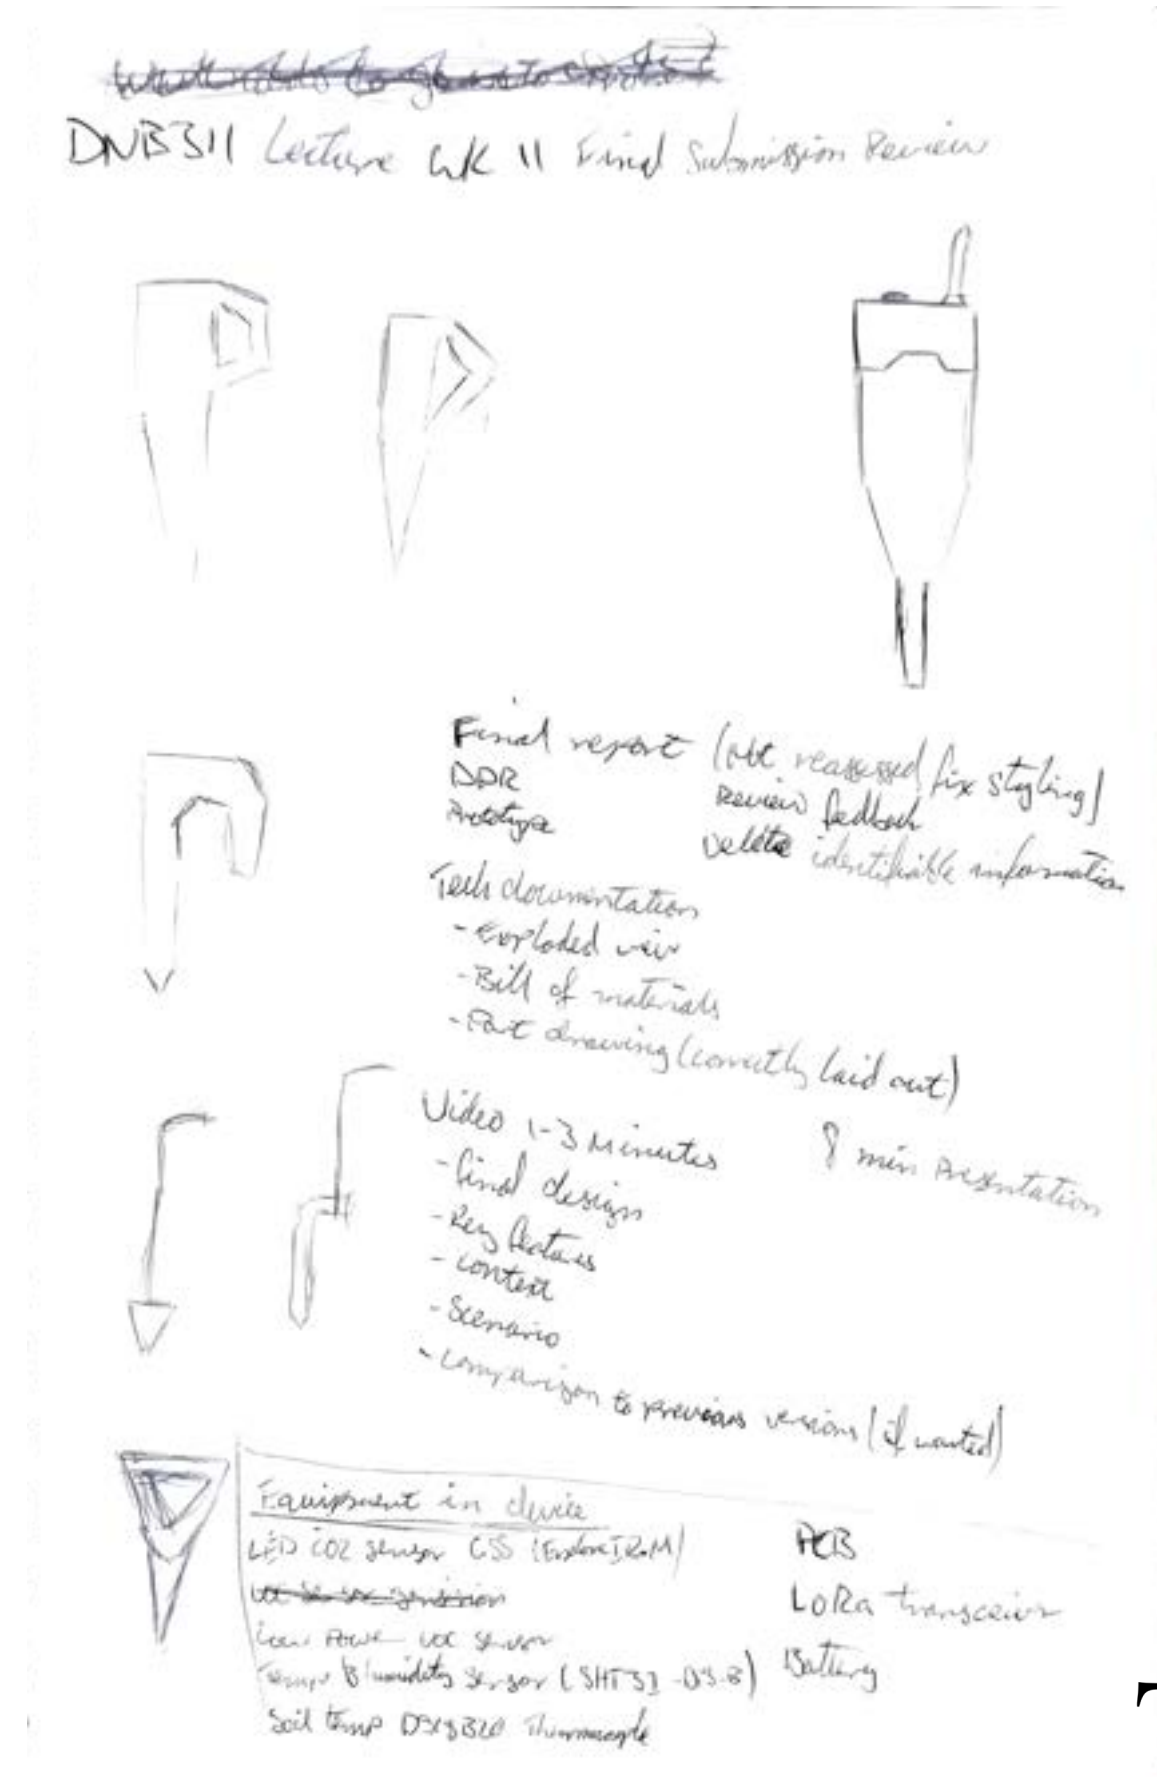 DNB311 Lecture WK 11 Final Submission Review
Final report (not reassessed fix styling)
DDR Review feedback
Prototype Delete identifiable information
Tech documentation
- Exploded view
- Bill of materials
- Part drawing (correctly laid out)
Video 1-3 Minutes
8 min Presentation
- final design
- Key features
- context
- Scenario
- Comparison to previous versions (if wanted)
Equipment in device
LED CO2 sensor GSS PCB
LoRa transceiver
Low Power VOC sensor
Temp & humidity sensor (SHT31-DS-B) Battery
Soil temp DS18B20 Thermocouple